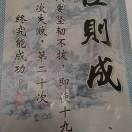 則成
要堅韌不拔，即使十九
次失敗，第二十次
終究能成功